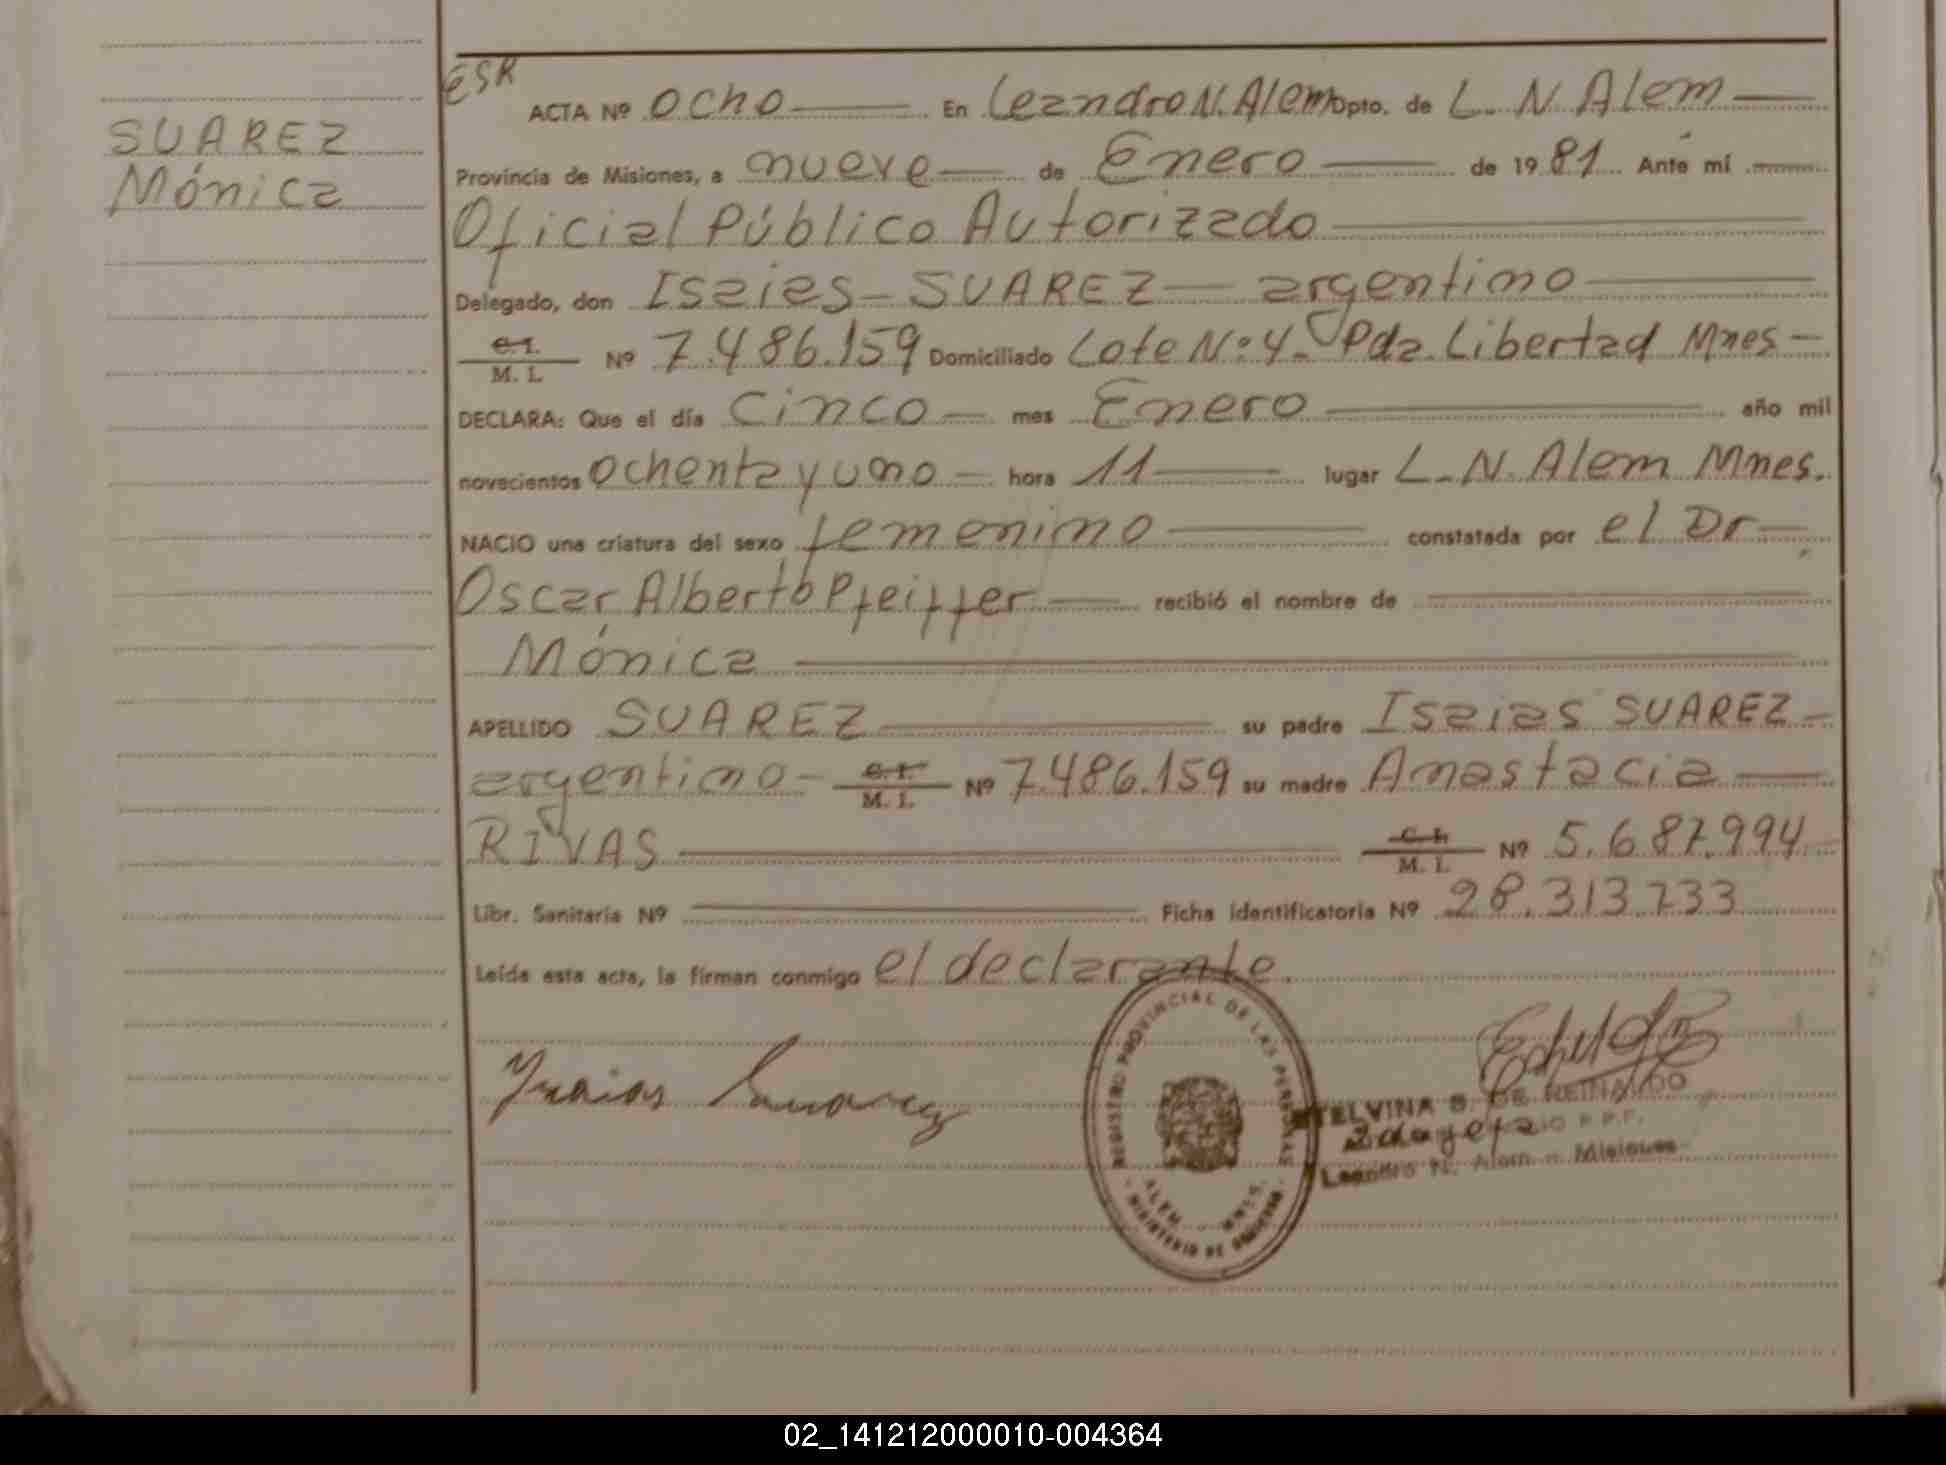 ESR
SUAREZ
Mónica
ACTA Nº ocho En Leandro N. Alem Dpto. de L. N. Alem
Provincia de Misiones, a nueve de Enero de 1981. Ante mí
Oficial Público Autorizado
Delegado, don Isaias SUAREZ argentino
C. I.
M. I. Nº 7.486.159 Domiciliado Lote Nº 4. Pda. Libertad Mnes
DECLARA: Que el día cinco mes Enero año mil
novecientos ochenta y uno hora 11 lugar L. N. Alem Mnes.
NACIO una criatura del sexo femenino constatada por el Dr
Oscar Alberto Pfeiffer recibió el nombre de
Mónica
APELLIDO SUAREZ su padre Isaias SUAREZ
argentino C. I.
M. I. Nº 7.486.159 su madre Anastacia
RIVAS C. I.
M. I. Nº 5.687.994
Libr. Sanitaria Nº Ficha identificatoria Nº 28.313.733
Leída esta acta, la firman conmigo el declarante.
Isaias Suarez
REGISTRO PROVINCIAL DE LAS PERSONAS
ALEM - MNES.
MINISTERIO DE GOBIERNO
ETELVINA B. DE REINALDO
R.P.P.
Leandro N. Alem - Misiones
02_141212000010-004364